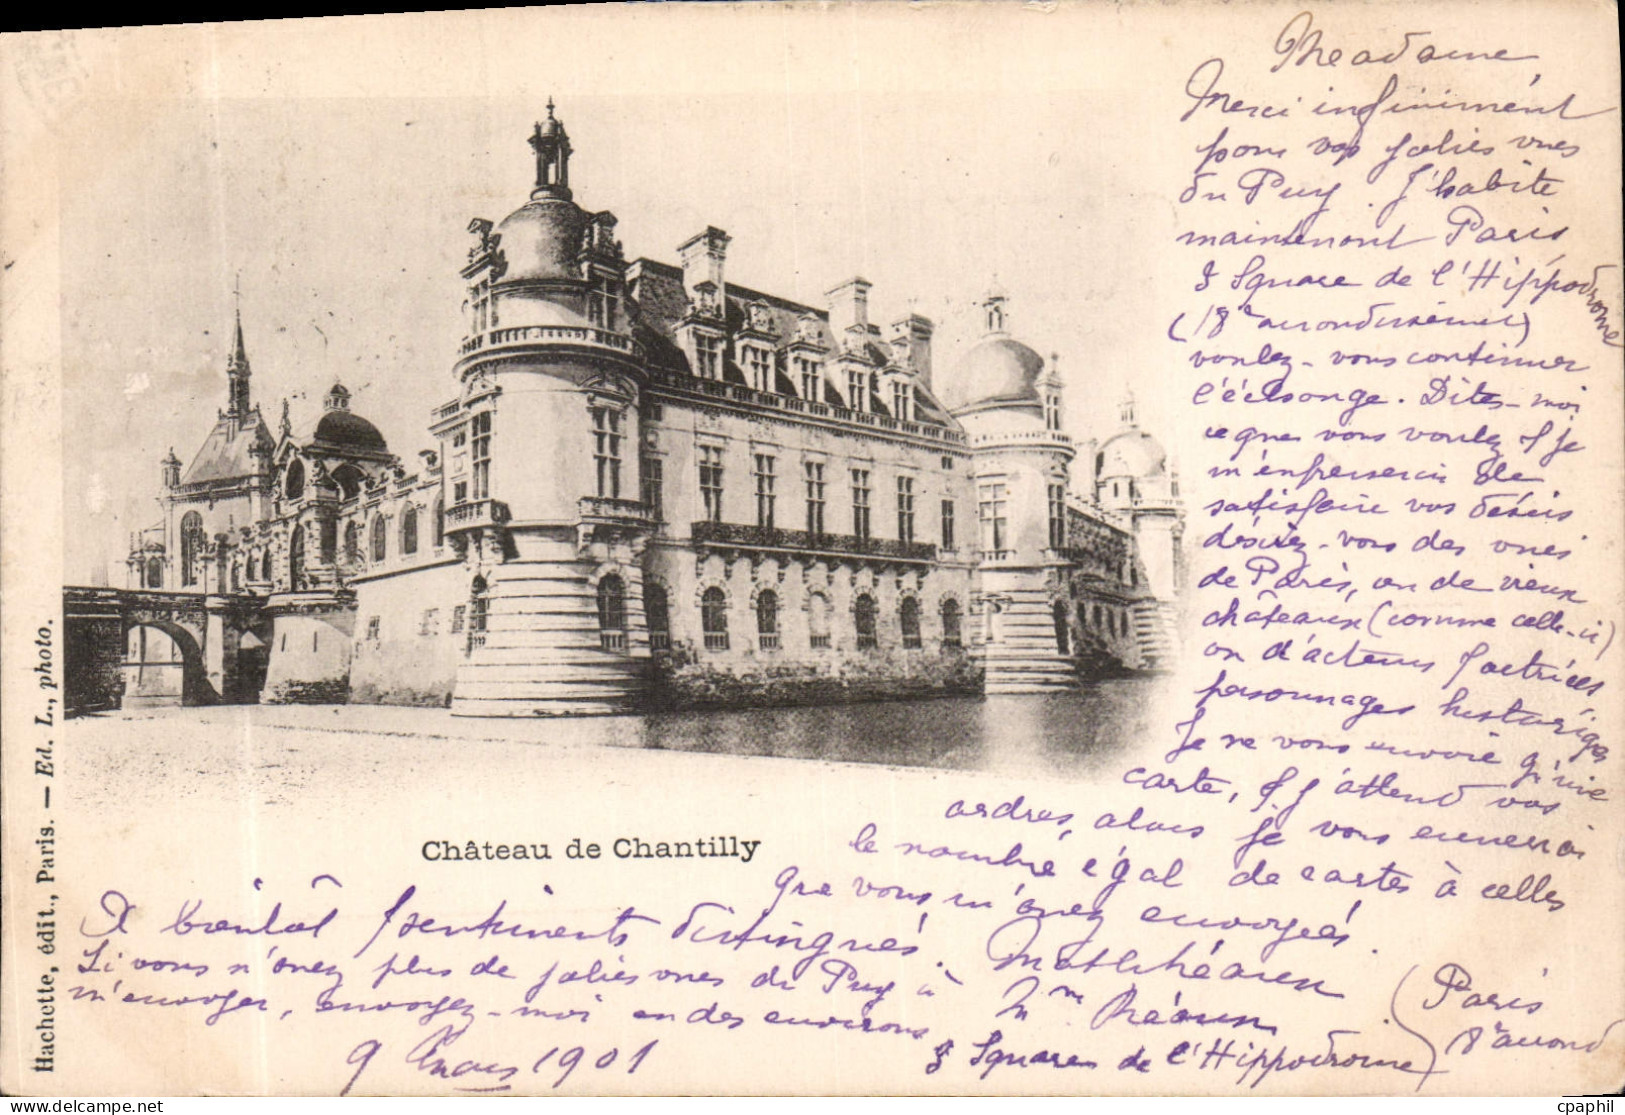 Madame
Merci infiniment
pour vos jolies vues
du Puy. J'habite
maintenant Paris
Square de l'Hippodrome
(18e arrondissement)
voulez-vous continuer
l'échange. Dites-moi
ce que vous voulez & je
m'empresserai de
satisfaire vos désirs
désirez-vous des vues
de Paris, ou de vieux
châteaux (comme celle-ci)
ou d'acteurs & actrices
personnages historiques
Je ne vous envoie qu'une
carte, & j'attend vos
ordres, alors je vous enverrai
le nombre égal de cartes à celles
que vous m'avez envoyées.
A bientôt & sentiments distingués.
Si vous n'avez plus de jolies vues du Puy à
m'envoyer, envoyez-moi en des environs
9 Mars 1901
Mme
Square de l'Hippodrome
(Paris
18e arrond
Château de Chantilly
Hachette, édit., Paris. — Ed. L., photo.
cpaphil